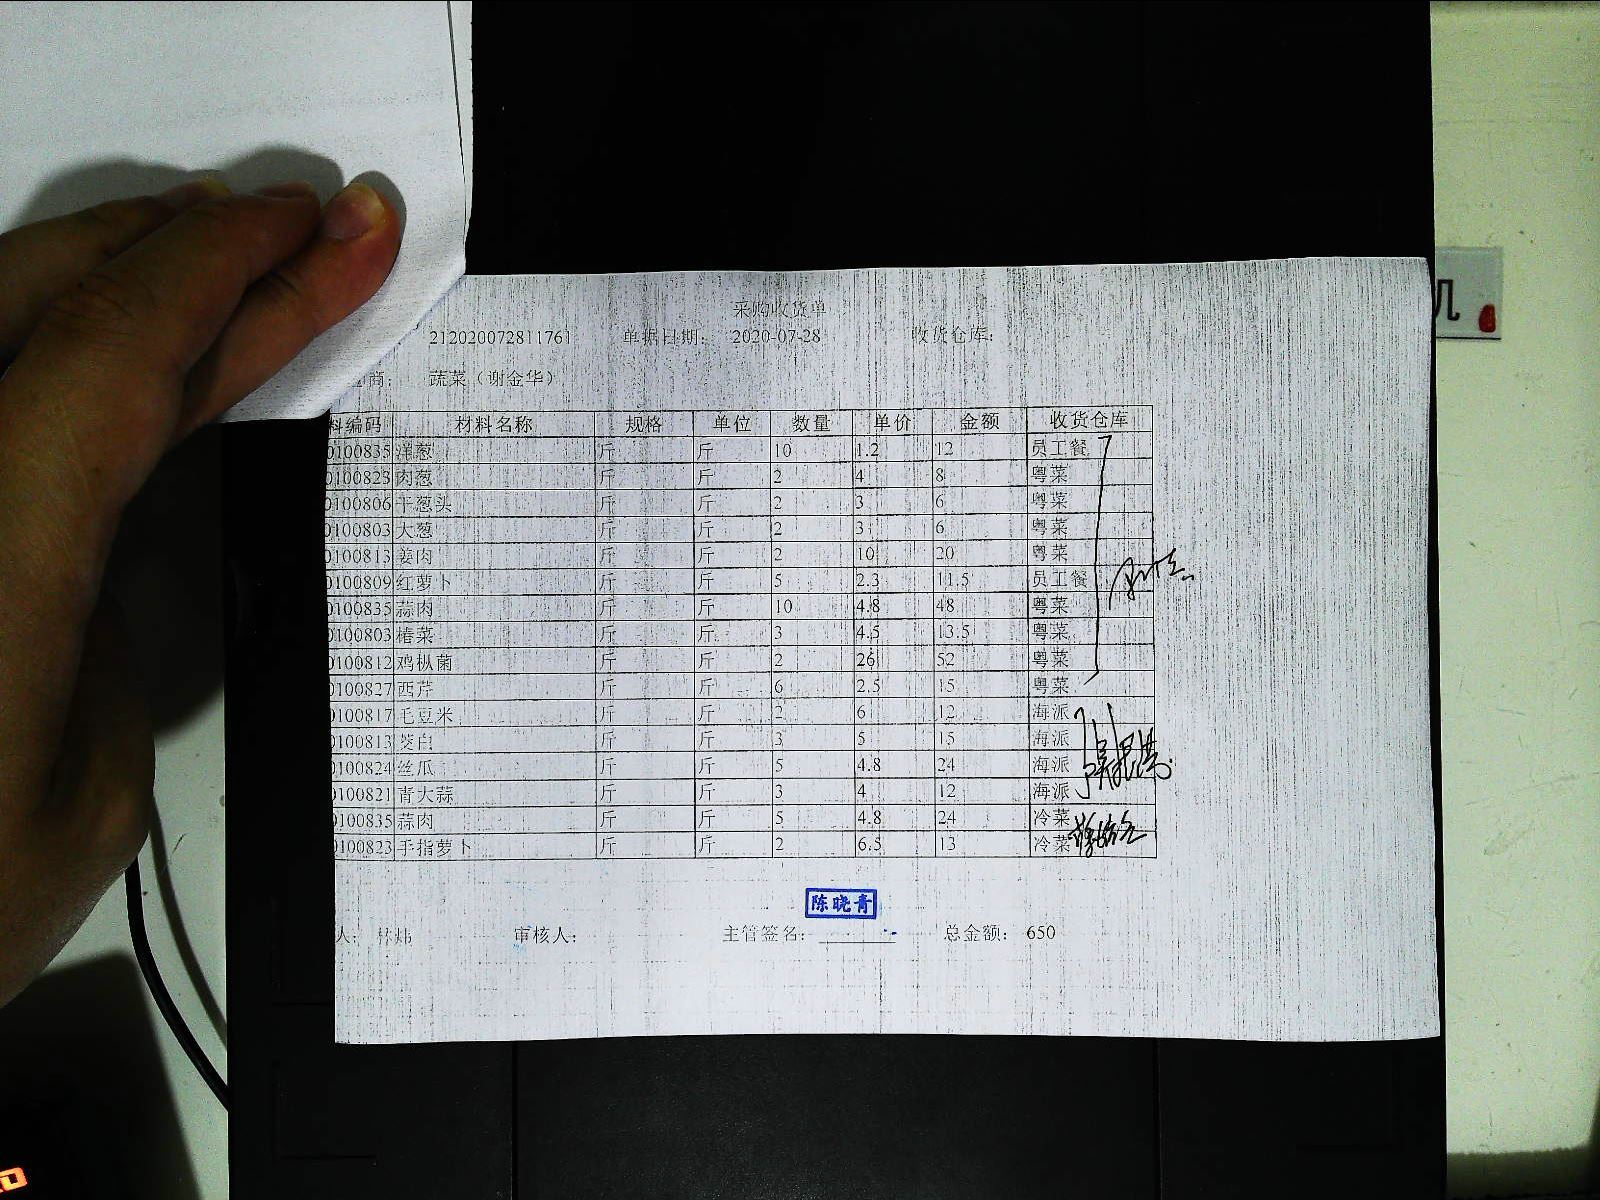 采购收货单
212020072811761 单据日期： 2020-07-28 收货仓库：
商： 蔬菜（谢金华）
料编码 材料名称 规格 单位 数量 单价 金额 收货仓库
0100835 洋葱 斤 斤 10 1.2 12 员工餐
0100823 肉葱 斤 斤 2 4 8 粤菜
0100806 干葱头 斤 斤 2 3 6 粤菜
0100803 大葱 斤 斤 2 3 6 粤菜
0100813 姜肉 斤 斤 2 10 20 粤菜
0100809 红萝卜 斤 斤 5 2.3 11.5 员工餐
0100835 蒜肉 斤 斤 10 4.8 48 粤菜
0100803 椿菜 斤 斤 3 4.5 13.5 粤菜
0100812 鸡枞菌 斤 斤 2 26 52 粤菜
0100827 西芹 斤 斤 6 2.5 15 粤菜
0100817 毛豆米 斤 斤 2 6 12 海派
0100813 茭白 斤 斤 3 5 15 海派
0100824 丝瓜 斤 斤 5 4.8 24 海派
0100821 青大蒜 斤 斤 3 4 12 海派
0100835 蒜肉 斤 斤 5 4.8 24 冷菜
0100823 手指萝卜 斤 斤 2 6.5 13 冷菜
陈晓青
人： 林炜 审核人： 主管签名： 总金额： 650
机